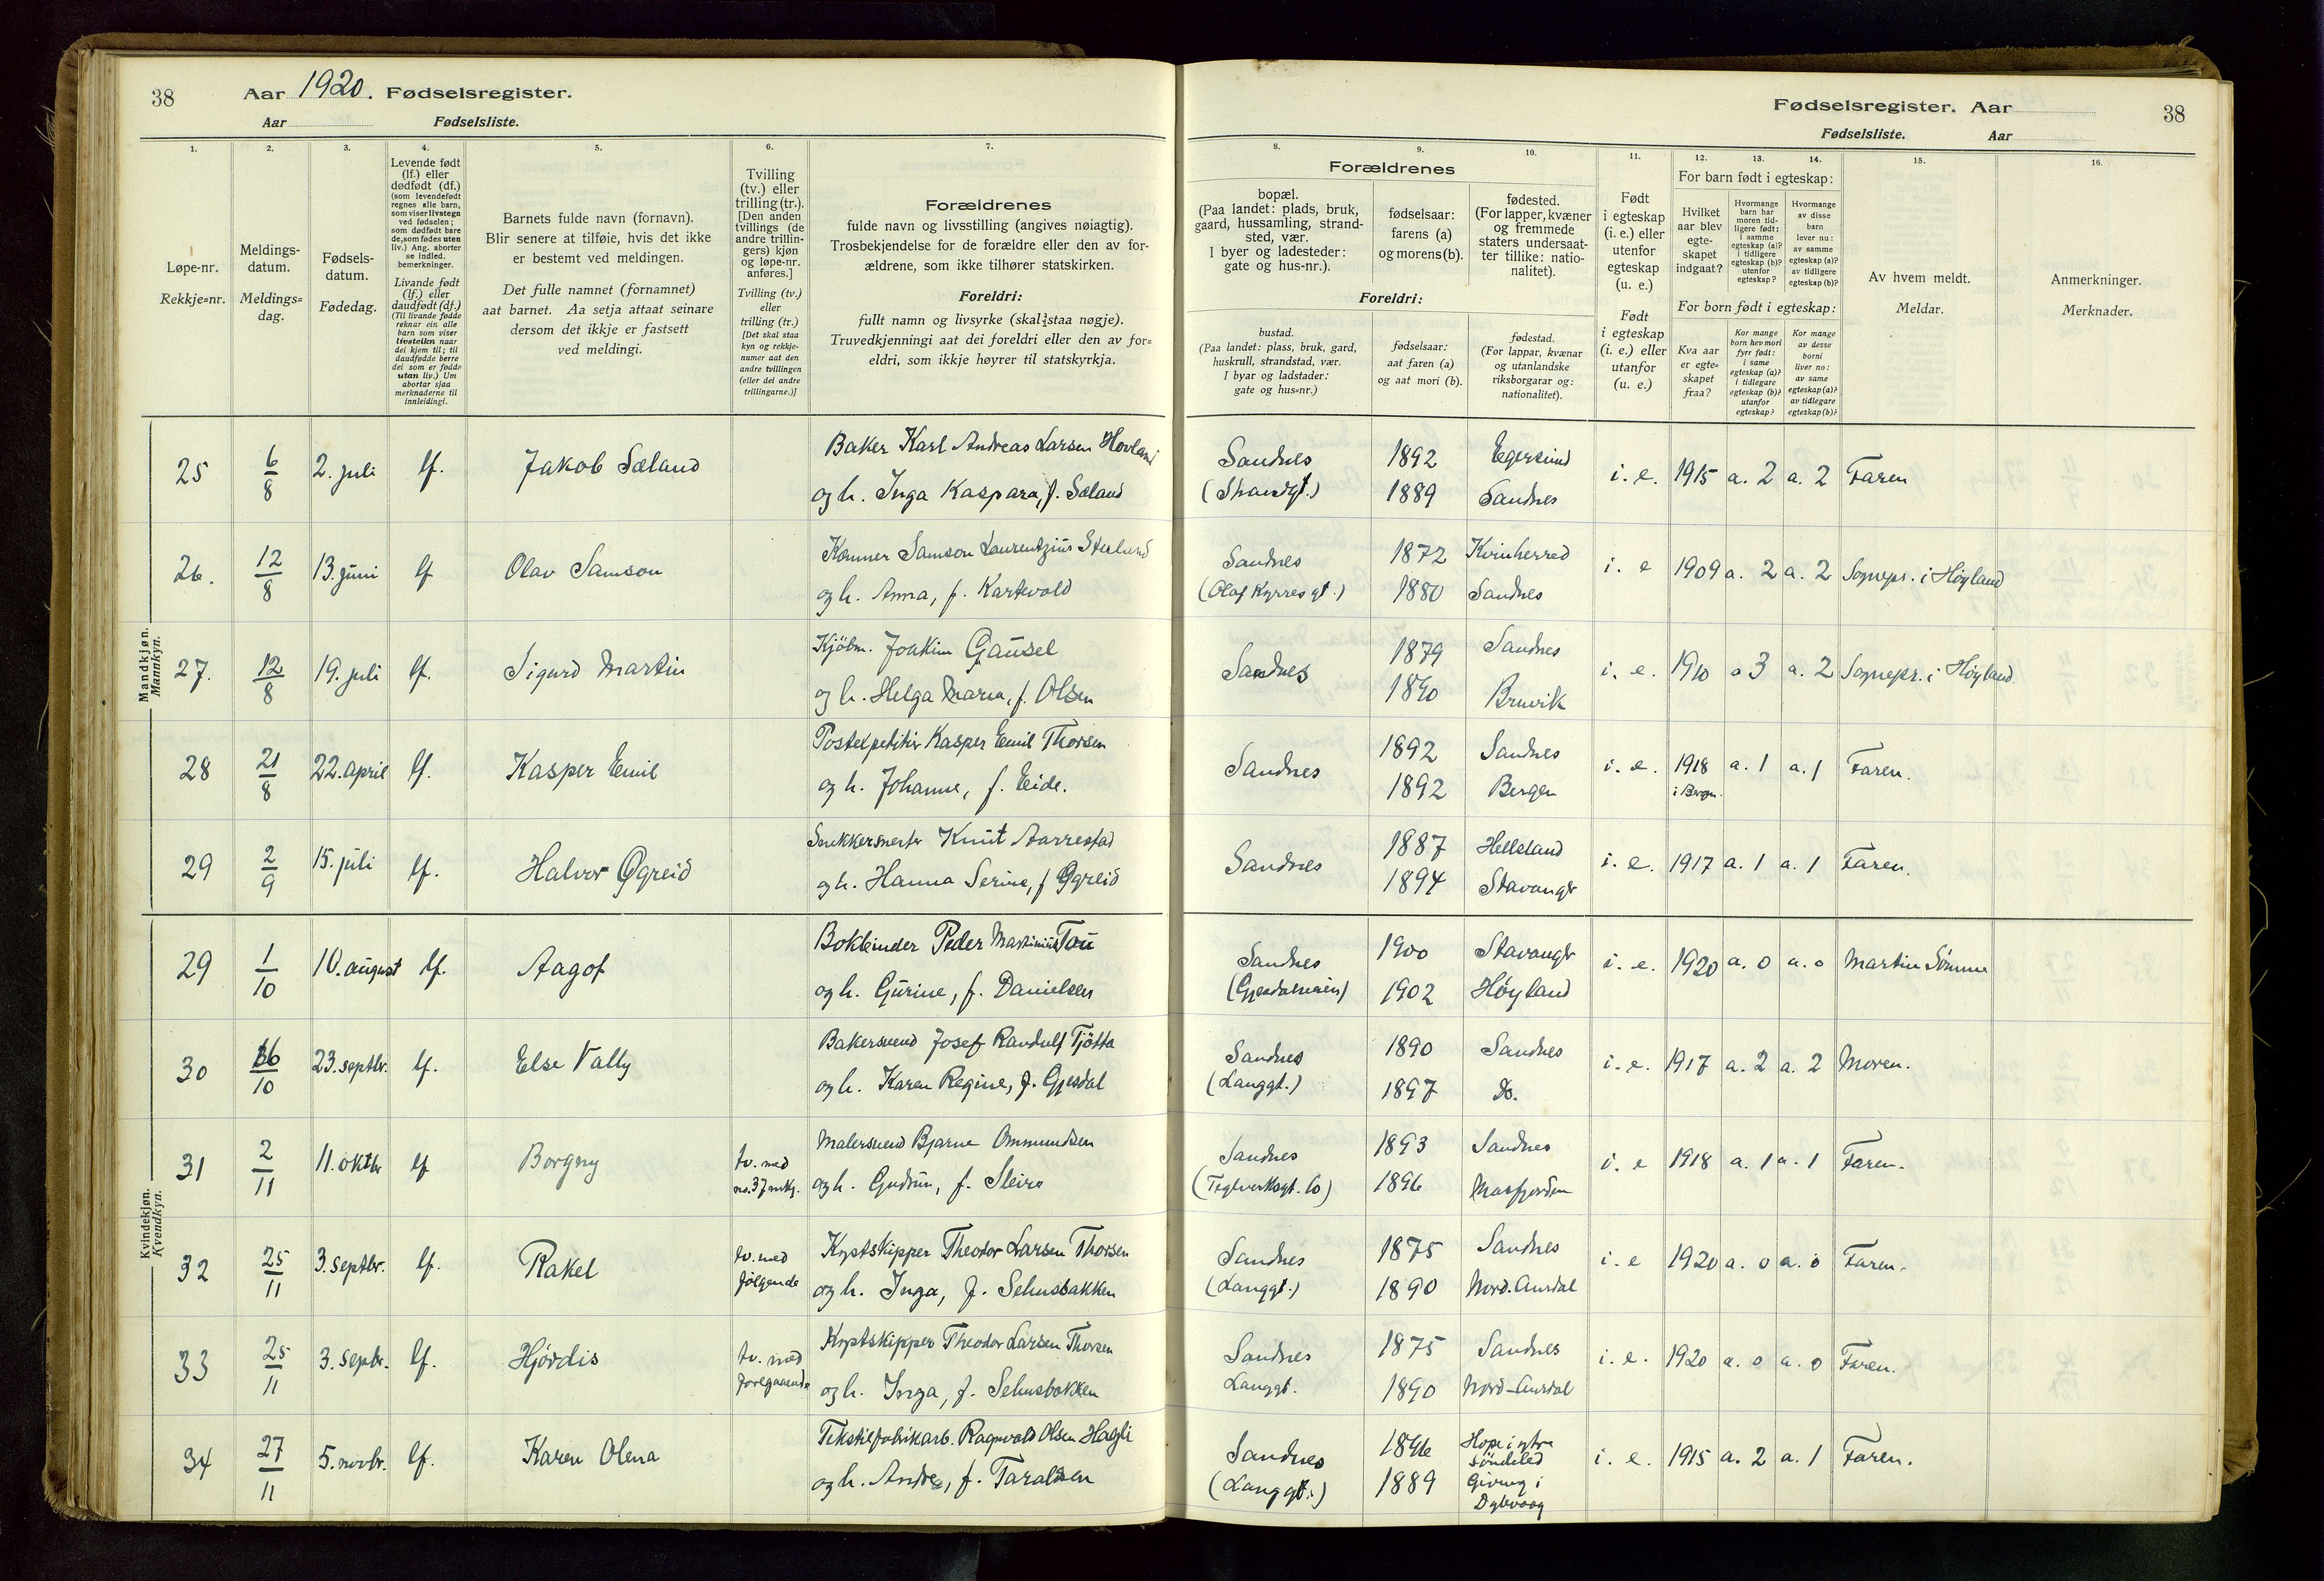 38 Aar 1920. Fødselsregister.
Aar Fødselsliste.
1. 2. 3. 4. 5. 6. 7.
Løpe-nr.
Rekkje=nr.
Meldings-
datum.
Meldings=
dag.
Fødsels-
datum.
Fødedag.
Levende født
(lf.) eller
dødfødt (df.)
(som levendefødt
regnes alle barn,
som viser livstegn
ved fødselen;
som dødfødt bare
de, som fødes uten
liv.) Ang. aborter
se indled.
bemerkninger.
Livande født
(lf.) eller
daudfødt (df.)
(Til livande fødde
reknar ein alle
barn som viser
livsteikn naar
dei kjem til; til
daudfødde berre
dei som er fødde
utan liv.) Um
abortar sjaa
merknaderne til
innleidingi.
Barnets fulde navn (fornavn).
Blir senere at tilføie, hvis det ikke
er bestemt ved meldingen.
Det fulle namnet (fornamnet)
aat barnet. Aa setja attaat seinare
dersom det ikkje er fastsett
ved meldingi.
Tvilling
(tv.) eller
trilling (tr.).
[Den anden
tvillings (de
andre trillin-
gers) kjøn
og løpe-nr.
anføres.]
Tvilling (tv.)
eller
trilling (tr.)
[Det skal staa
kyn og rekkje-
numer aat den
andre tvillingen
(eller dei andre
trillingarne.)]
Forældrenes
fulde navn og livsstilling (angives nøiagtig).
Trosbekjendelse for de forældre eller den av for-
ældrene, som ikke tilhører statskirken.
Foreldri:
fullt namn og livsyrke (skal staa nøgje).
Truvedkjenningi aat dei foreldri eller den av for=
eldri, som ikkje høyrer til statskyrkja.
Mandkjøn.
Mannkyn.
25 6/8 2. juli lf. Jakob Sæland Baker Karl Andreas Larsen Hovland
og h. Inga Kaspara, f. Sæland
26. 12/8 13. juni lf Olav Samson Kæmner Samson Laurentzius
og h. Anna, f. Kartevold
27. 12/8 19. juli lf. Sigurd Martin Kjöbm. Joakim Gausel
og h. Helga Maria, f. Olsen
28 21/8 22. april lf. Kasper Emil Postexpeditör Kasper Emil Thorsen
og h. Johanne, f. Eide.
29 2/9 15. juli lf. Halvor Øgreid Snekkermester Knut Aarrestad
og h. Hanna Serine, f Øgreid
Kvindekjøn.
Kvendkyn.
29 1/10 10. august lf. Aagot Bokbinder Peder Martinius Tau
og h. Gurine, f. Danielsen
30 /10 23. septbr. lf. Else Vally Bakersvend Josef Randulf Tjötta
og h. Karen Regine, f. Gjesdal
31 2/11 11. oktbr lf Borgny tv. med Malersvend Bjarne Ommundsen
no. 37 mkj. og h. Gudrun, f. Sleire
32 25/11 3. septbr. lf. Rakel tv. med Theodor Larsen Thorsen
følgende og h. Inga, f. Sehusbakken
33 25/11 3. septbr. lf. Hjördis tv. med Theodor Larsen Thorsen
foregaaende og h. Inga, f. Sehusbakken
34 27/11 5. novbr. lf. Karen Olena Tekstilfabrikarb. Ragnvald Olsen Hagli
og h. Andrea, f. Taraldsen
Fødselsregister. Aar 38
Fødselsliste. Aar
8. 9. 10. 11. 12. 13. 14. 15. 16.
Forældrenes
bopæl.
(Paa landet: plads, bruk,
gaard, hussamling, strand-
sted, vær.
I byer og ladesteder:
gate og hus-nr.).
fødselsaar:
farens (a)
og morens (b).
fødested.
(For lapper, kvæner
og fremmede
staters undersaat-
ter tillike: natio-
nalitet).
Foreldri:
bustad.
(Paa landet: plass, bruk, gard,
huskrull, strandstad, vær.
I byar og ladstader:
gate og hus=nr.)
fødselsaar:
aat faren (a)
og aat mori (b).
fødestad.
(For lappar, kvænar
og utanlandske
riksborgarar og:
nationalitet).
Født
i egteskap
(i. e.) eller
utenfor
egteskap
(u. e.)
Født
i egteskap
(i. e.) eller
utanfor
(u. e.)
For barn født i egteskap:
Hvilket
aar blev
egte-
skapet
indgaat?
Hvormange
barn har
moren tid-
ligere født:
i samme
egteskap (a)?
i tidligere
egteskap (b)?
utenfor
egteskap?
Hvormange
av disse
barn
lever nu:
av samme
egteskap (a)?
av tidligere
egteskap (b)?
For born født i egteskap:
Kva aar
er egte-
skapet
fraa?
Kor mange
born hev mori
fyrr født:
i same
egteskap (a)?
i tidlegare
egteskap (b)?
utanfor
egteskap?
Kor mange
av desse
borni
liver no:
av same
egteskap (a)?
av tidlegare
egteskap (b)?
Av hvem meldt.
Meldar.
Anmerkninger.
Merknader.
Sandnes 1892 Egersund i. e. 1915 a. 2 a. 2 Faren
(Strandgt.) 1889 Sandnes
Sandnes 1872 Kvinherred i. e 1909 a. 2 a. 2 Sognepr. i Høyland
(Olaf Kyrres gt.) 1880 Sandnes
Sandnes 1879 Sandnes i. e. 1910 a 3 a. 2 Sognepr. i Høyland
1890 Bruvik
Sandnes 1892 Sandnes i. e. 1918 a. 1 a. 1 Faren.
1892 Bergen i Bergen.
Sandnes 1887 Helleland i. e. 1917 a. 1 a. 1 Faren.
1894 Stavanger
Sandnes 1900 Stavanger i. e. 1920 a. 0 a. 0 Martin Sömme
(Gjesdalveien) 1902 Høyland
Sandnes 1890 Sandnes i. e. 1917 a. 2 a. 2 Moren.
(Langgt.) 1897 Do.
Sandnes 1893 Sandnes i. e 1918 a. 1 a. 1 Faren.
(Teglverksgt. 10) 1896 Masfjorden
Sandnes 1875 Sandnes i. e 1920 a. 0 a. 0 Faren.
(Langgt.) 1890 Nord-Aurdal
Sandnes 1875 Sandnes i. e. 1920 a. 0 a. 0 Faren.
Langgt. 1890 Nord-Aurdal
Sandnes 1896 Hope i ytre i. e. 1915 a. 2 a. 1 Faren.
söndeled
(Langgt.) 1889 Giving i
Dybvaag